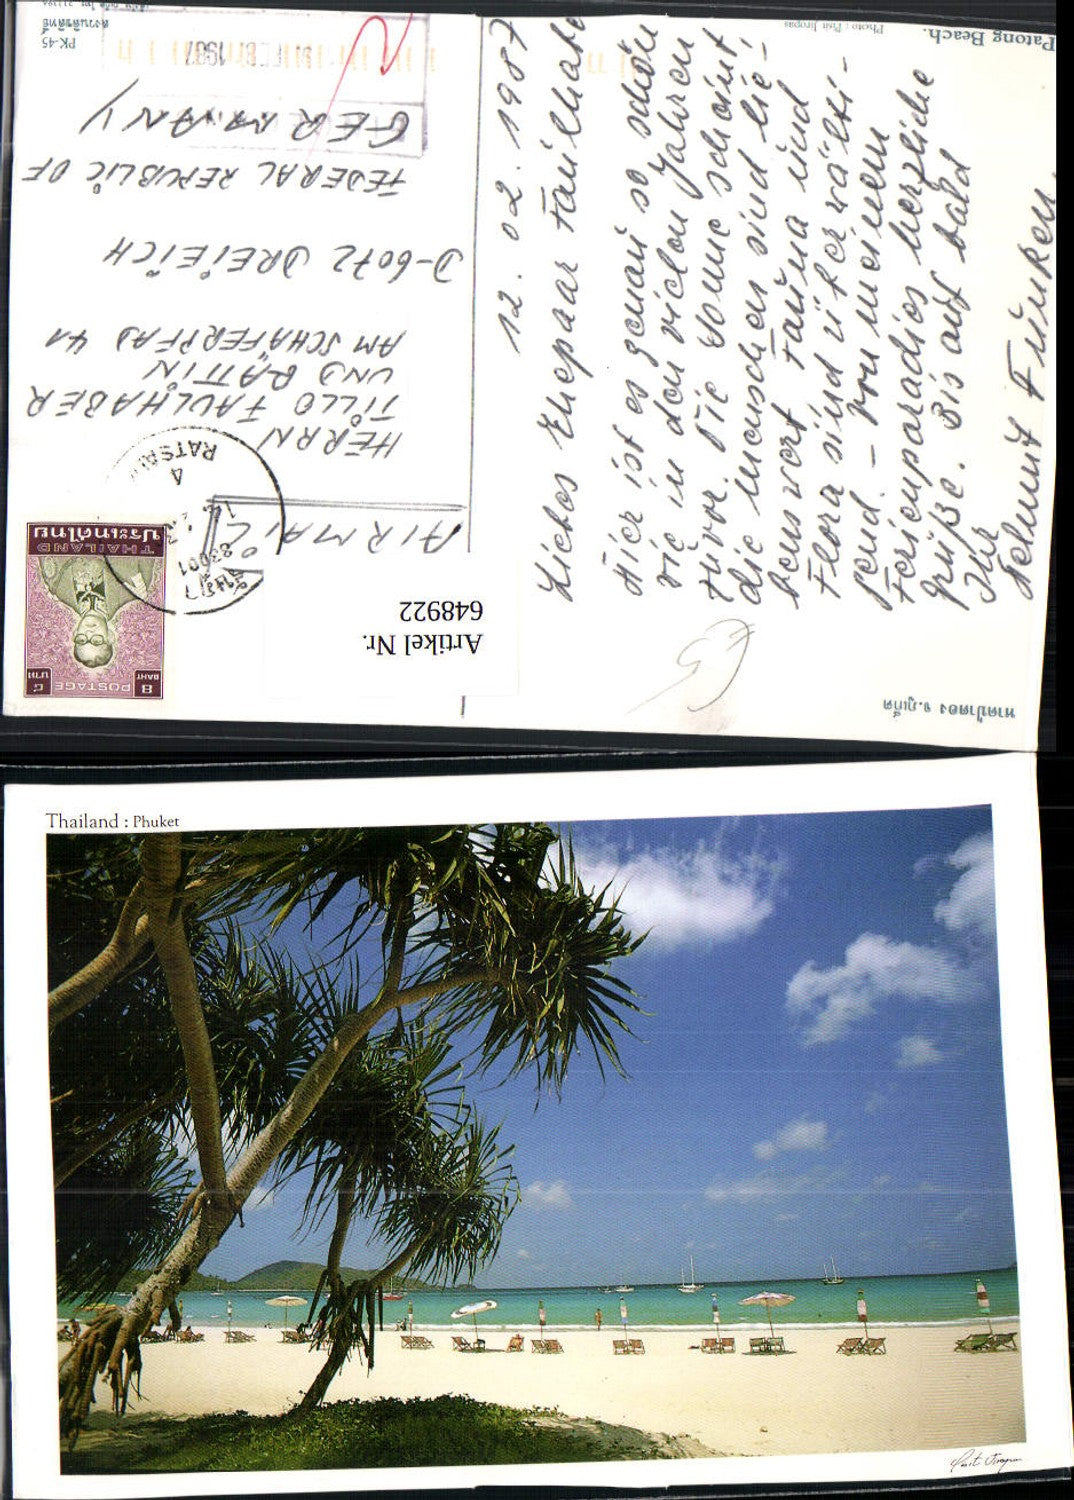 Patong Beach.
Photo : Pisit Jiropas
PK-45
หาดป่าตอง จ.ภูเก็ต
12. 02. 1987
Liebes Ehepaar Faulhaber
Hier ist es genau so schön
wie in den vielen Jahren
zuvor. Die Sonne scheint
die Menschen sind lie-
benswert Fauna und
Flora sind überwälti-
gend - von meinem
Ferienparadies herzliche
Grüße. Bis auf bald
Ihr
Helmut Funken
AIRMAIL
HERRN
TILLO FAULHABER
UND GATTIN
AM SCHÄFERPFAD 41
D-6072 DREIEICH
FEDERAL REPUBLIC OF
GERMANY
1987
83001
4
8
BAHT
POSTAGE
๘
บาท
THAILAND
ประเทศไทย
Artikel Nr.
648922
Thailand : Phuket